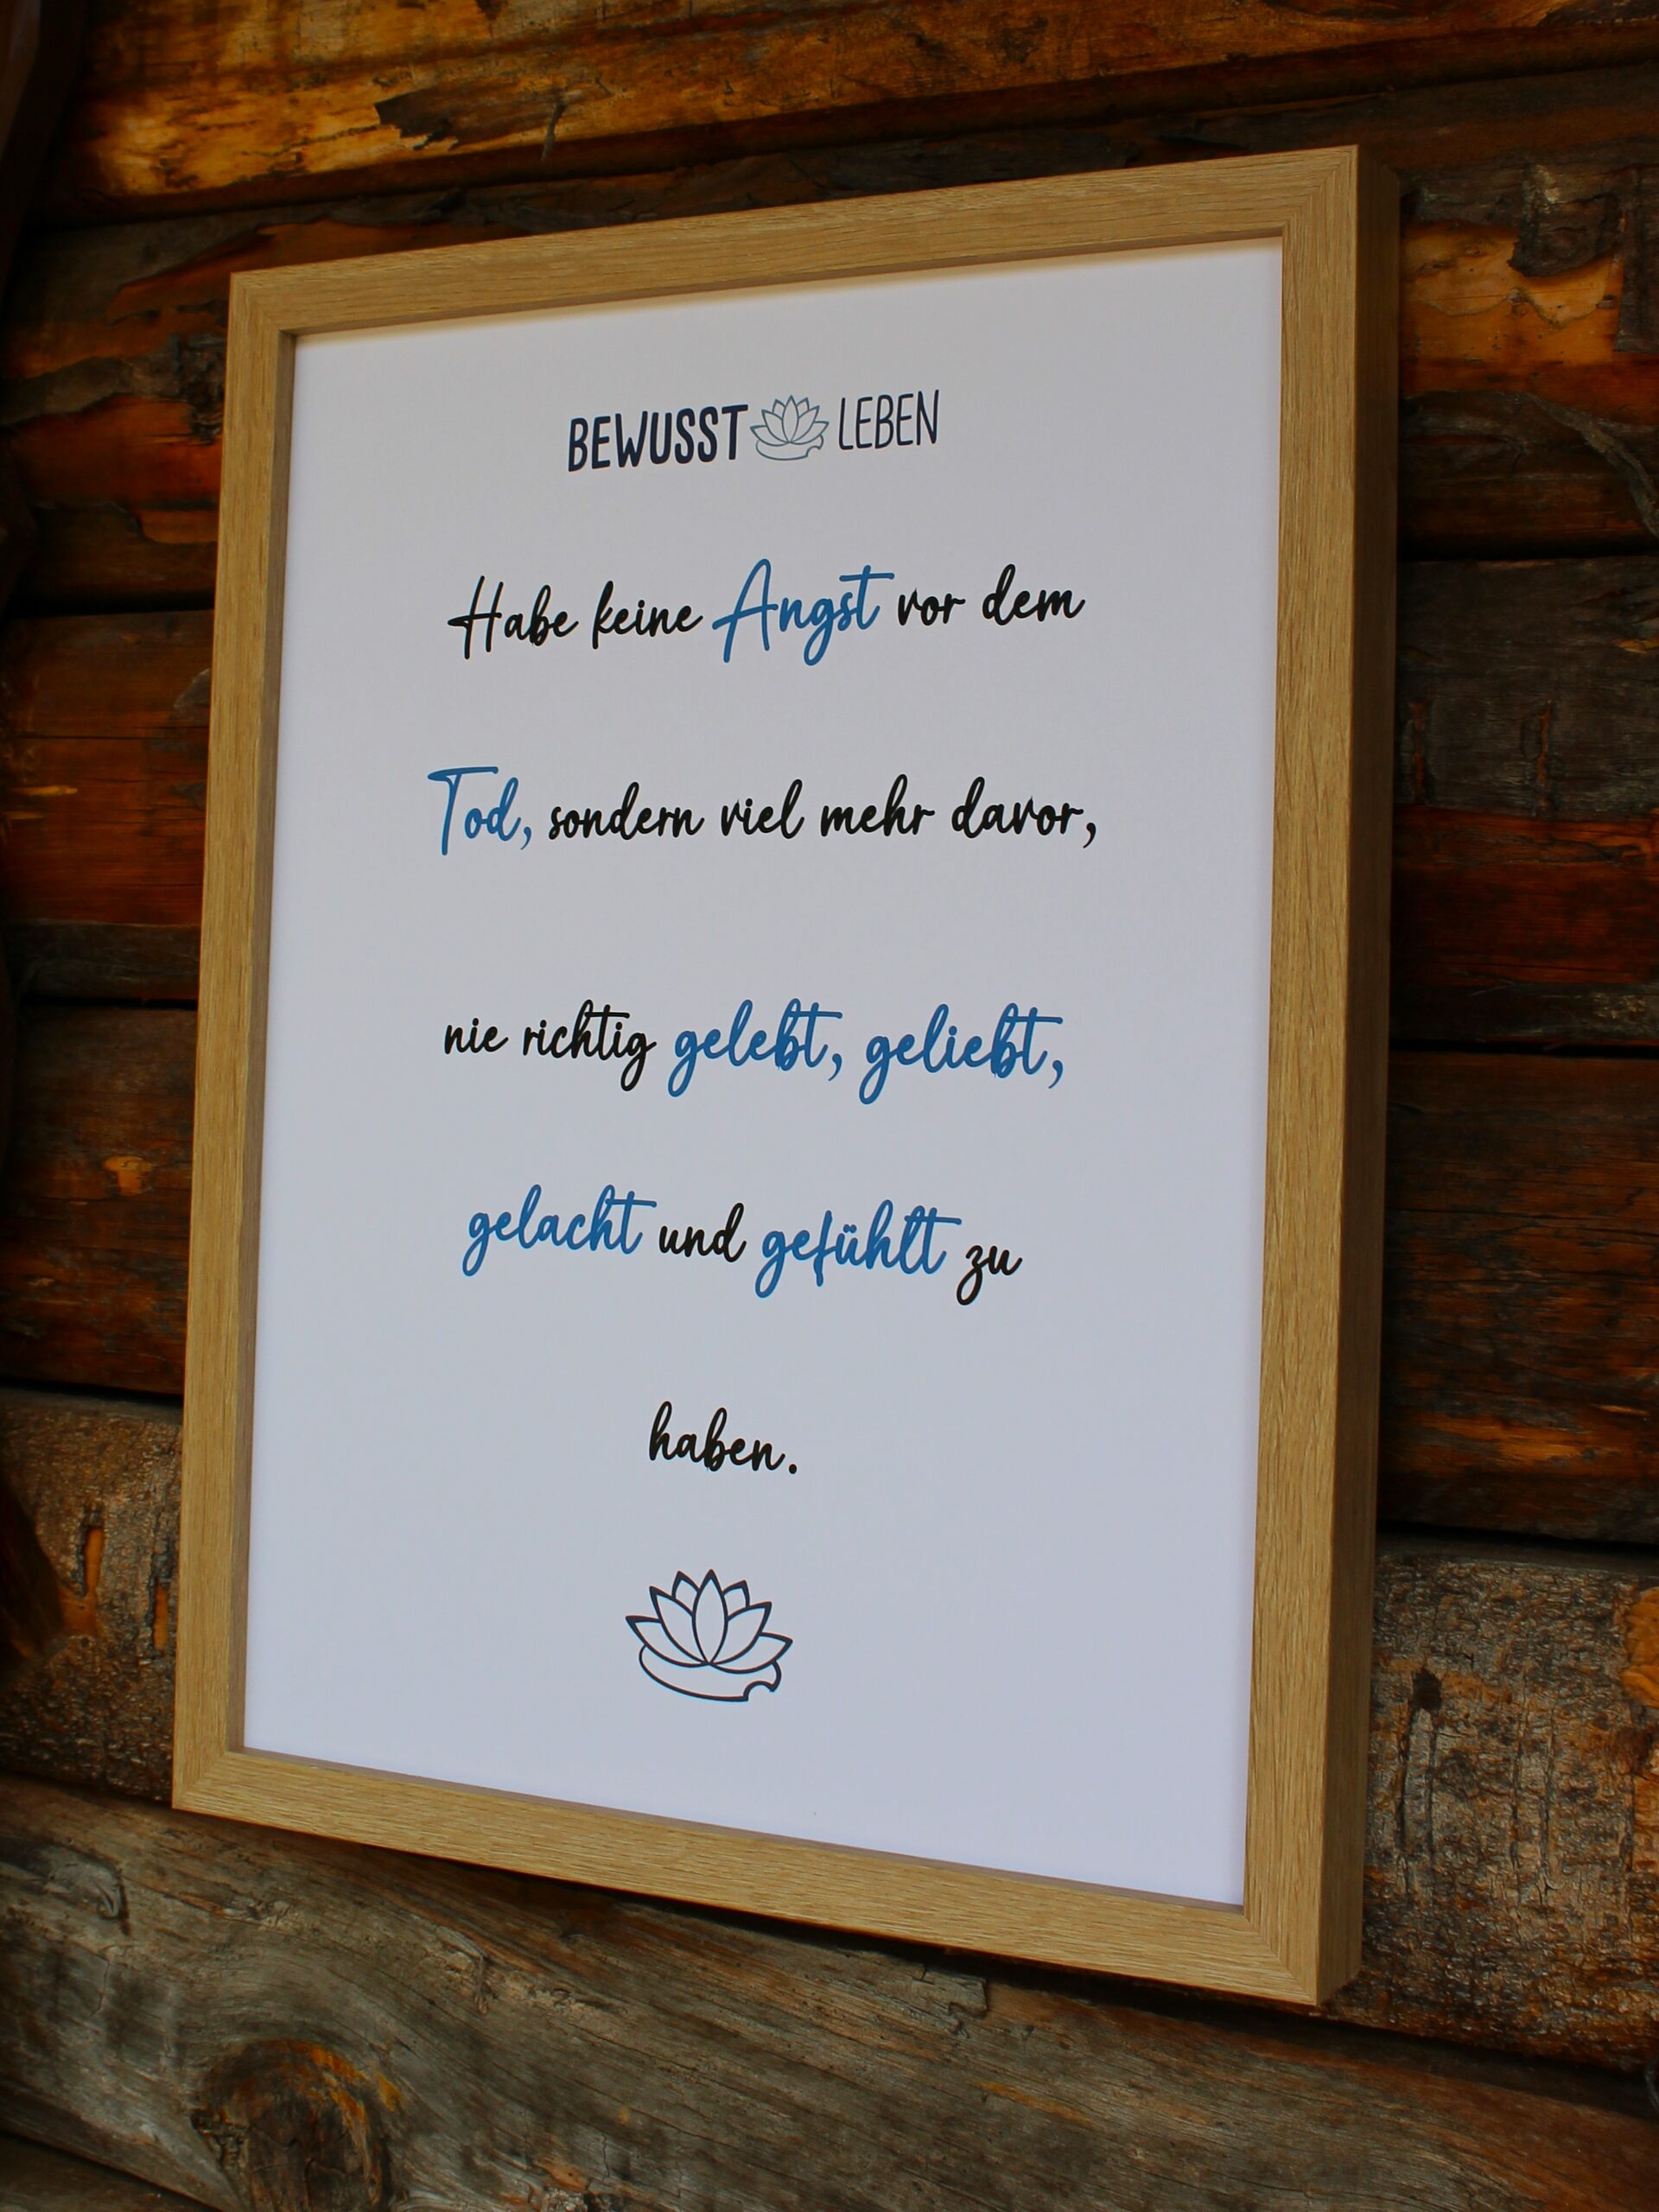 BEWUSST LEBEN
Habe keine Angst vor dem
Tod, sondern viel mehr davor,
nie richtig gelebt, geliebt,
gelacht und gefühlt zu
haben.